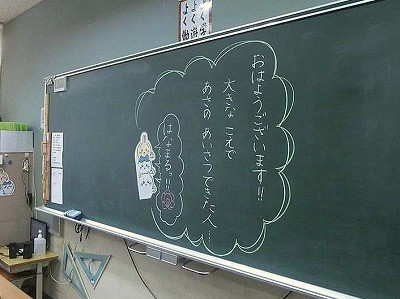 おはようございます!!
大きな こえで
あさの あいさつできた人…
はなまるっ!!